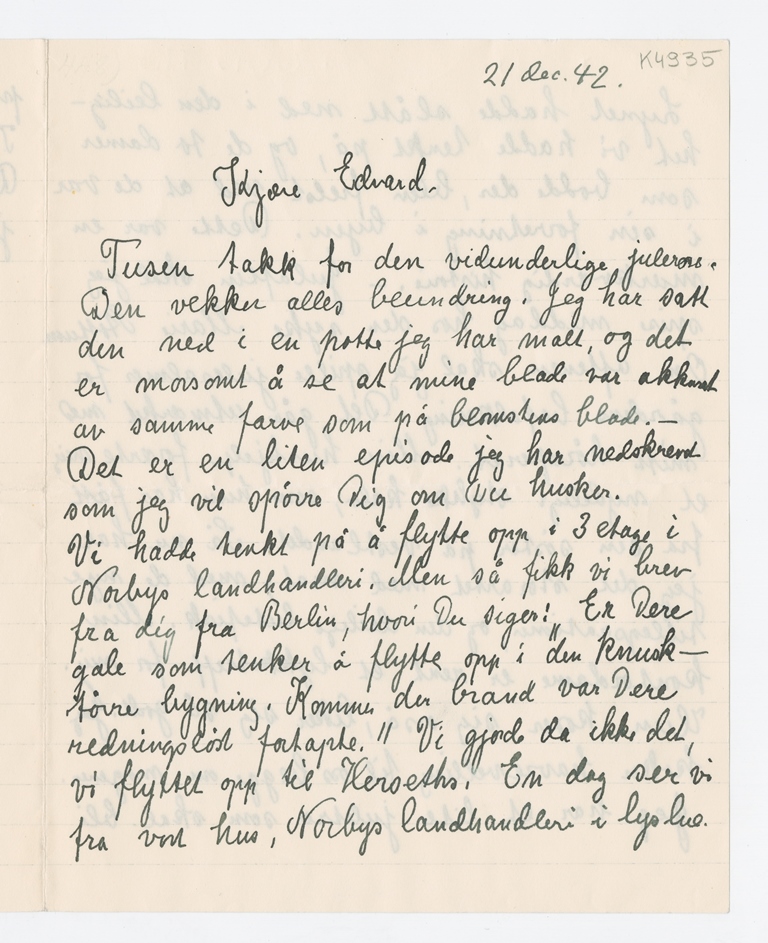 K4935
21 dec. 42.
Kjære Edvard.
Tusen takk for den vidunderlige julerose.
Den vekker alles beundring. Jeg har satt
den ned i en potte jeg har malt, og det
er morsomt å se at mine blade var akkurat
av samme farve som på blomstens blade. —
Det er en liten episode jeg har nedskrevet
som jeg vil spørre Dig om Du husker.
Vi hadde tenkt på å flytte opp i 3 etage i
Norbys landhandleri. Men så fikk vi brev
fra dig fra Berlin, hvori Du siger! Er Dere
gale som tenker å flytte opp i "den knusk—
tørre bygning. Kommer der brand var Dere
redningsløst fortapte." Vi gjorde da ikke det,
vi flyttet opp til Herseths. En dag ser vi
fra vort hus, Norbys landhandleri i lyslue.